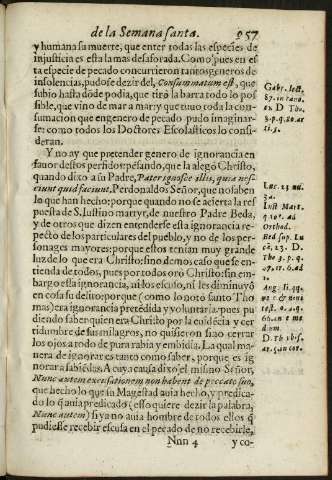 de la Semana santa. 957
y humana su muerte, que entre todas las especies de
injusticia es esta la mas desaforada. Como pues en es
ta especie de pecado concurrieron tantos generos de
insolencias, pudo se dezir del, Consummatum est, que
subio hasta dōde podia, que tirò la barra todo lo pos
sible, que vino de mar a mar y que tuuo toda la con-
sumacion que en genero de pecado pudo imaginar-
se: como todos los Doctores Escolasticos lo consi-
deran.
Y no ay que pretender genero de ignorancia en
fauor destos perfidos: pēsando, que la alegò Christo,
quando dixo a su Padre, Pater ignosce illis, quia nes-
ciunt quid faciunt. Perdonaldos Señor, que no saben
lo que han hecho: porque quando no se acierta la res
puesta de S. Iustino martyr, de nuestro Padre Beda,
y de otros que dizen entenderse esta ignorancia res-
pecto de los particulares del pueblo, y no de los per-
sonages mayores: porque ellos tenian muy grande
luz de lo que era Christo: sino demos caso que se en-
tienda de todos, pues por todos orò Christo: sin em-
bargo esta ignorancia, ni los escusò, ni les diminuyò
en cosa su delito: porque (como lo notò santo Tho
mas) era ignorancia pretēdida y voluntaria: pues pu
diendo saber quien era Christo por la euidēcia y cer
tidumbre de sus milagros, no quisieron sino cerrar
los ojos a todo de pura rabia y embidia. La qual ma-
nera de ignorar es tanto como saber, porque es ig-
norar a sabiēdas. A cuya causa dixo el mismo Señor,
Nunc autem excusationem non habent de peccato suo,
que hecho lo que su Magestad auia hecho, y predica-
do lo q̄ auia predicado (esso quiere dezir la palabra,
Nunc autem) si ya no auia hombre de todos ellos q̄
pudiesse recebir escusa en el pecado de no recebirle,
Nnn 4 y co-
Gabr. lect.
D. Tho.
3. p. q.
Luc. 23 nu.
Iust Mart.
Orthod.
Bed sup. Lu
c. 23. D.
Tho 3. p. q.
47. ar. 6. ad
Aug. li. qq.
dum.